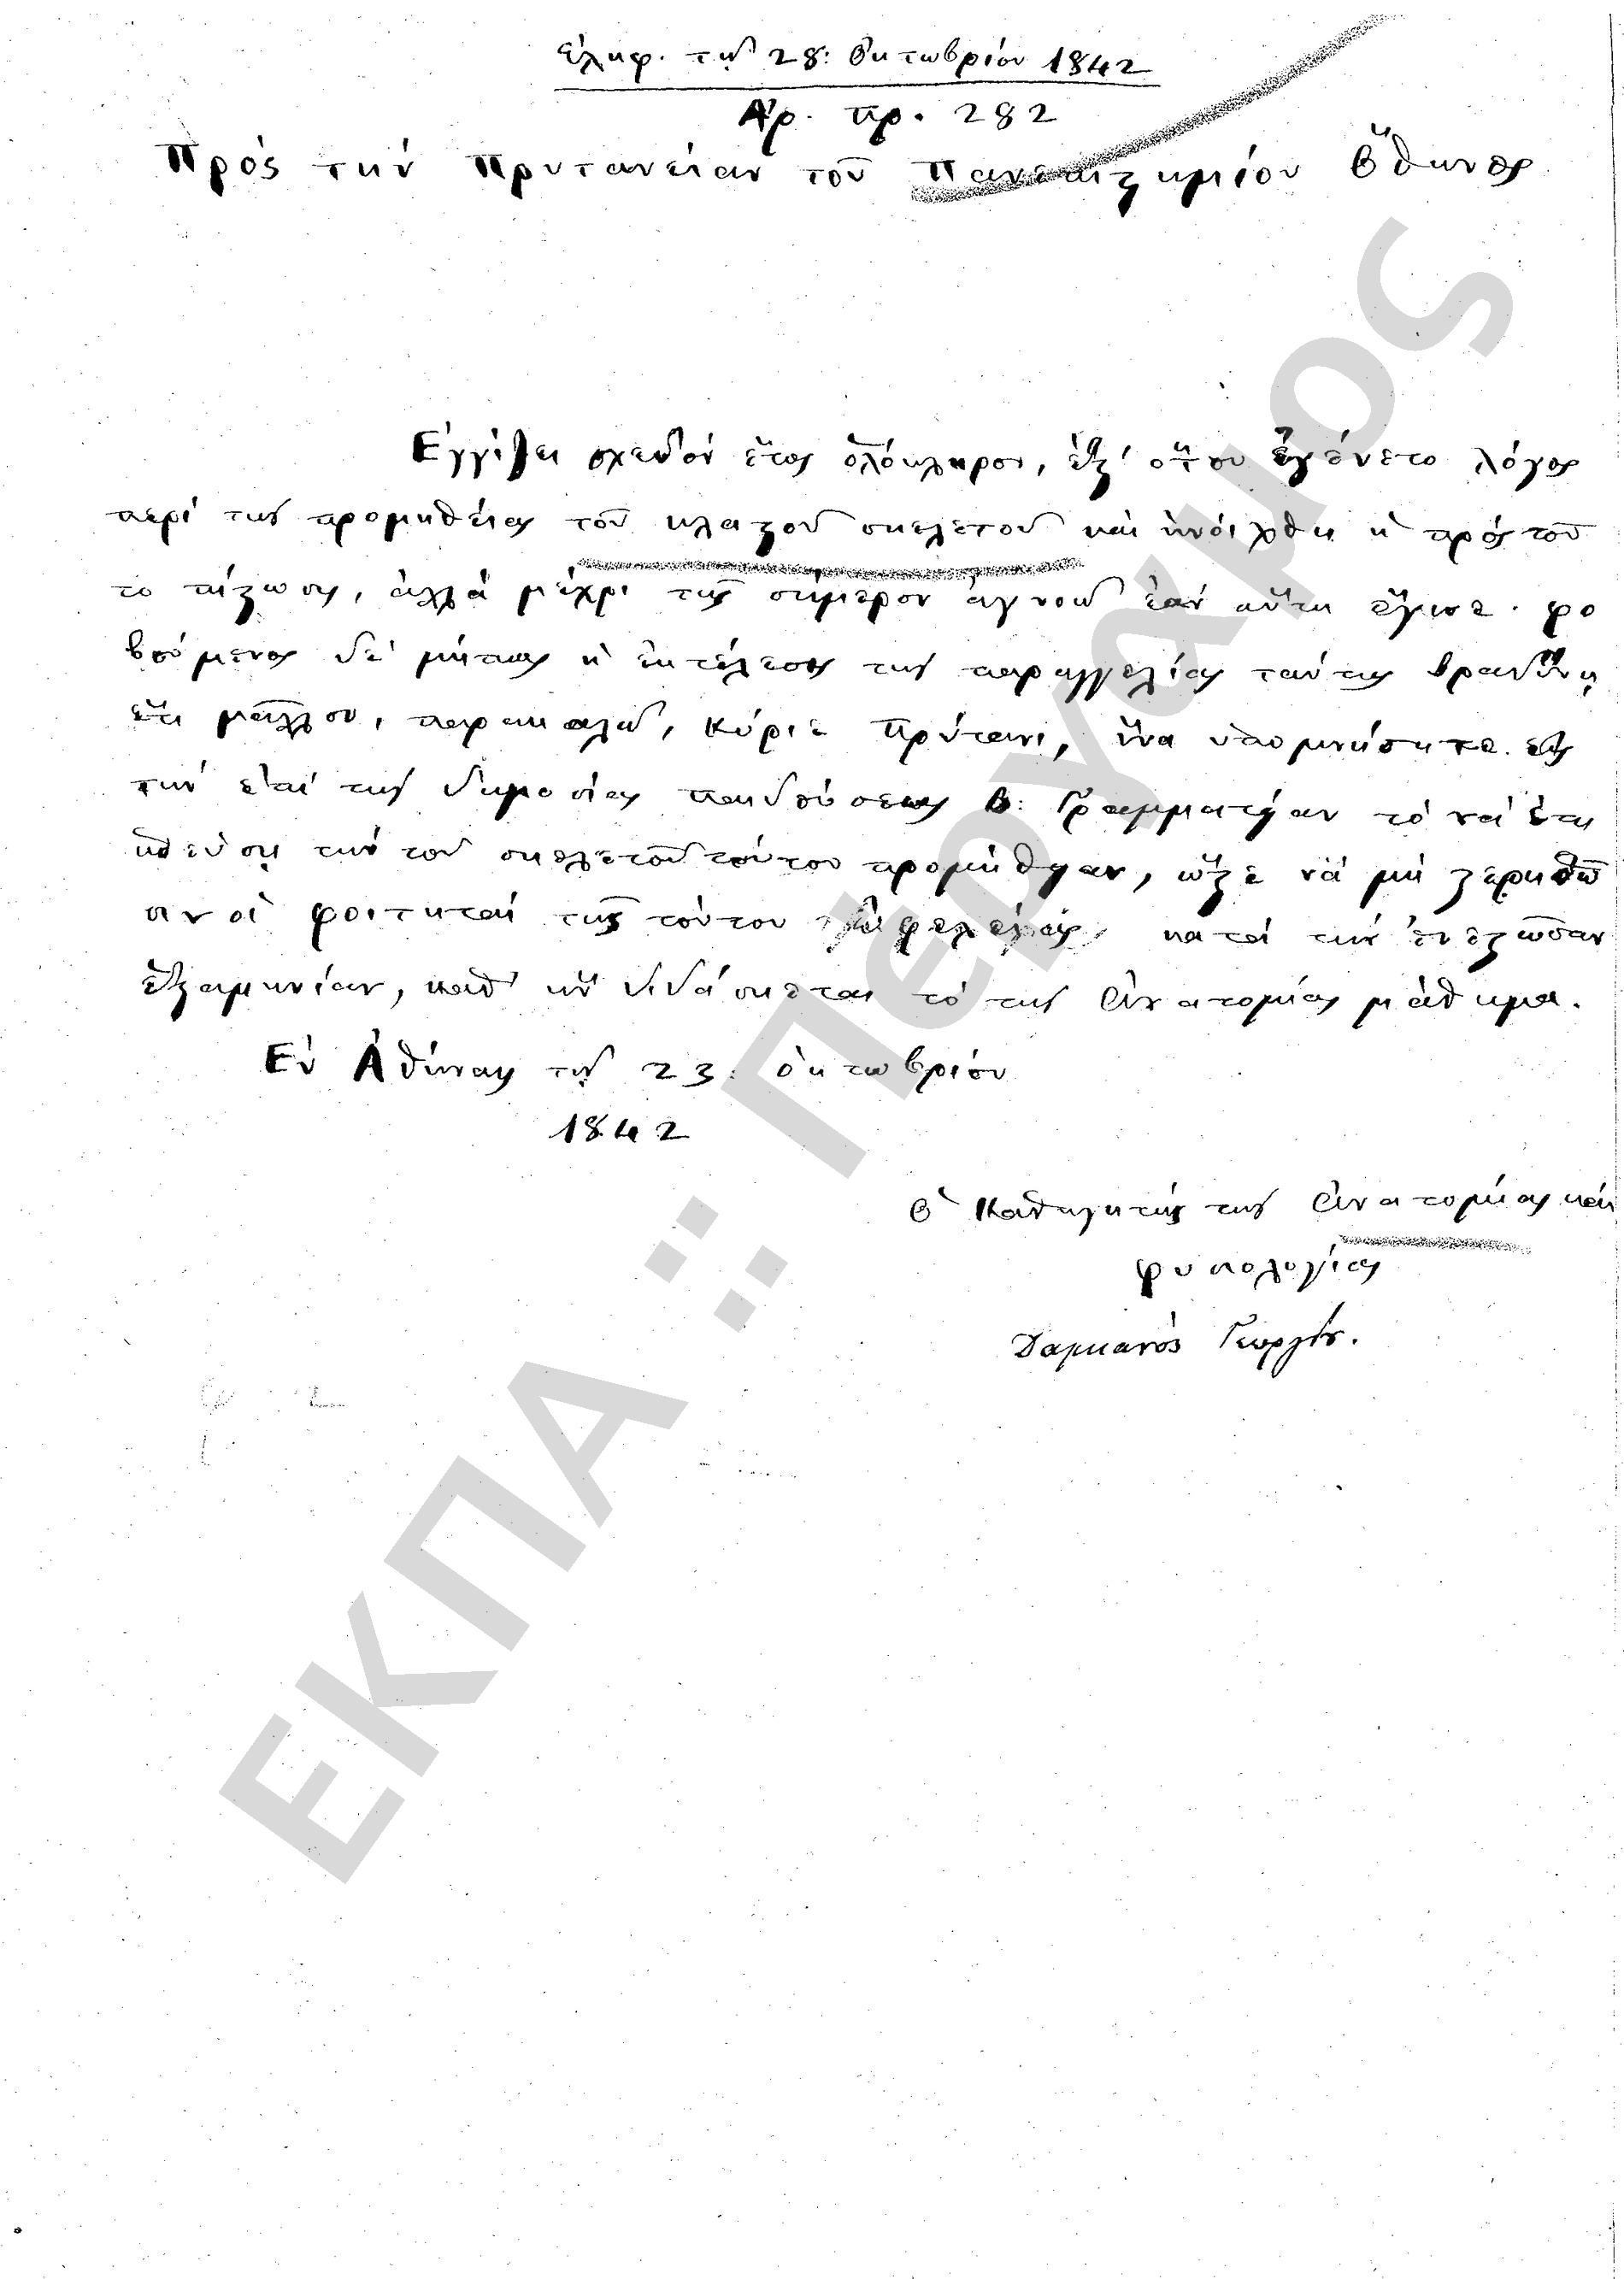 Ἐλήφ. τῇ 28: Ὀκτωβρίου 1842
Ἀρ. πρ. 282
Πρὸς τὴν Πρυτανείαν τοῦ Πανεπιστημίου Ὄθωνος
Ἐγγίζει σχεδὸν ἔτος ὁλόκληρον, ἐξ' ὅτου ἐγένετο λόγος
περὶ τῆς προμηθείας τοῦ πλαστοῦ σκελετοῦ καὶ ἠνοίχθη ἡ πρὸς τοῦ
το πίστωσις, ἀλλὰ μέχρι τῆς σήμερον ἀγνοῶ ἐὰν αὕτη ἔγινε· φο
βούμενος δὲ μήπως ἡ ἐκτέλεσις τῆς παραγγελίας ταύτης βραδύνῃ
ἔτι μᾶλλον, παρακαλῶ, Κύριε Πρύτανι, ἵνα ὑπομνήσητε εἰς
τὴν ἐπὶ τῆς δημοσίας παιδεύσεως Β: Γραμματείαν τὸ νὰ ἐπι
σπεύσῃ τὴν τοῦ σκελετοῦ τούτου προμήθειαν, ὥστε νὰ μὴ στερηθῶ
σιν οἱ φοιτηταὶ τῆς τούτου ὠφελείας κατὰ τὴν ἐνεστῶσαν
ἑξαμηνίαν, καθ' ἣν διδάσκεται τὸ τῆς Ἀνατομίας μάθημα.
Ἐν Ἀθήναις τῇ 23: ὀκτωβρίου
1842
Ὁ Καθηγητὴς τῆς Ἀνατομίας καὶ
φυσιολογίας
Δαμιανὸς Γεωργίου.
ΕΚΠΑ :: Πέργαμος